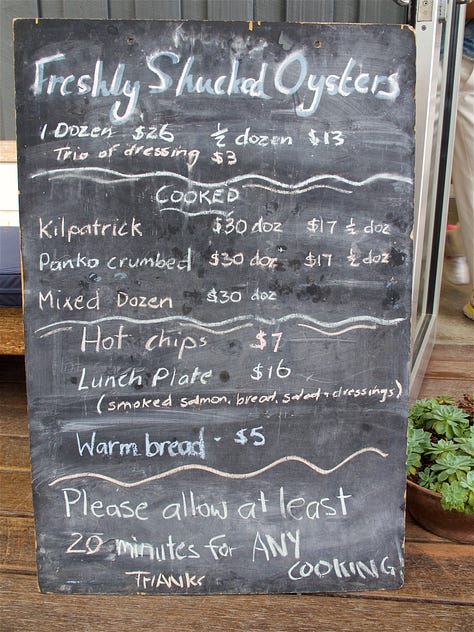 Freshly Shucked Oysters
1 Dozen $26 ½ dozen $13
Trio of dressing $3
COOKED
Kilpatrick $30 doz $17 ½ doz
Panko crumbed $30 doz $17 ½ doz
Mixed Dozen $30 doz
Hot chips $7
Lunch Plate $16
(smoked salmon, bread, salad + dressings)
Warm bread - $5
Please allow at least
20 minutes for ANY
COOKING
THANKS